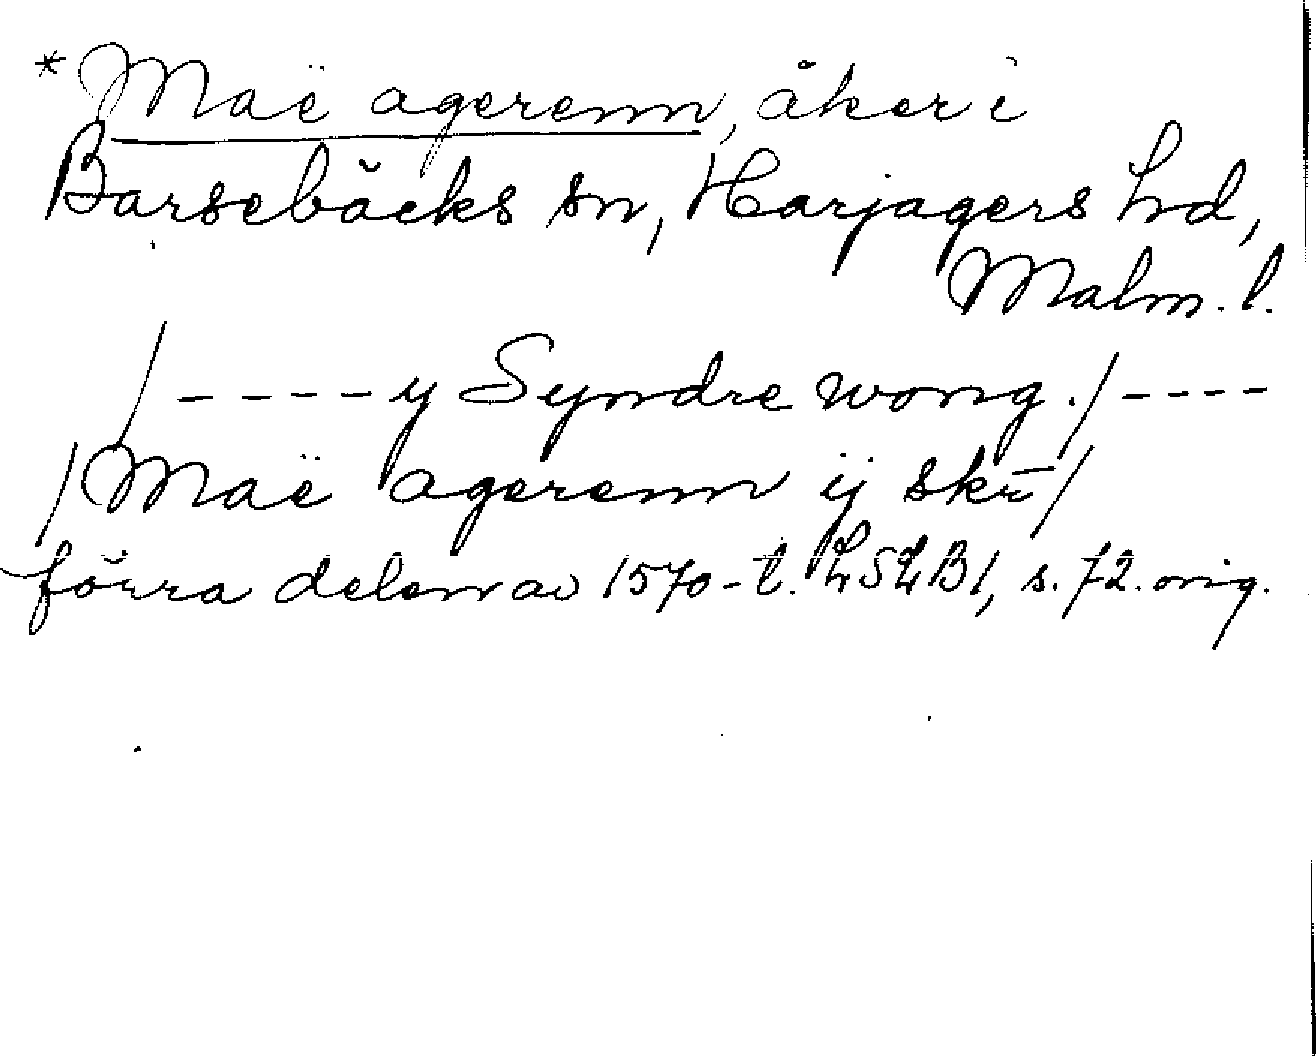 * Maë agerenn, åker i
Barsebäcks sn, Harjagers hd,
Malm. l.
/ - - - - y Syndre wong. / - - - -
/ Maë agerenn ij skr̄ /
förra delen av 1570-t. LSLB1, s. 72. orig.